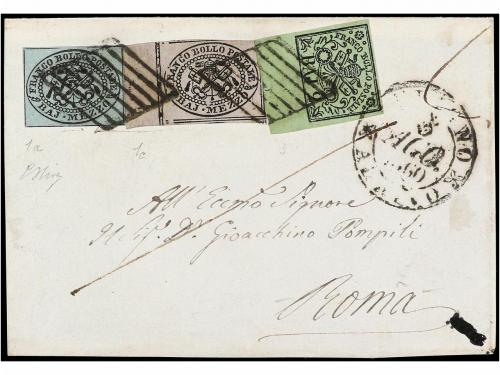 FRANCO BOLLO POSTALE
BAJ. MEZZO
FRANCO BOLLO POSTALE
BAJ. MEZZO
FRANCO BOLLO POSTALE
BAJ.
AGO.
60
1a
1c
All' Eccmo Signore
Il Sig. D. Gioacchino Pompili
Roma